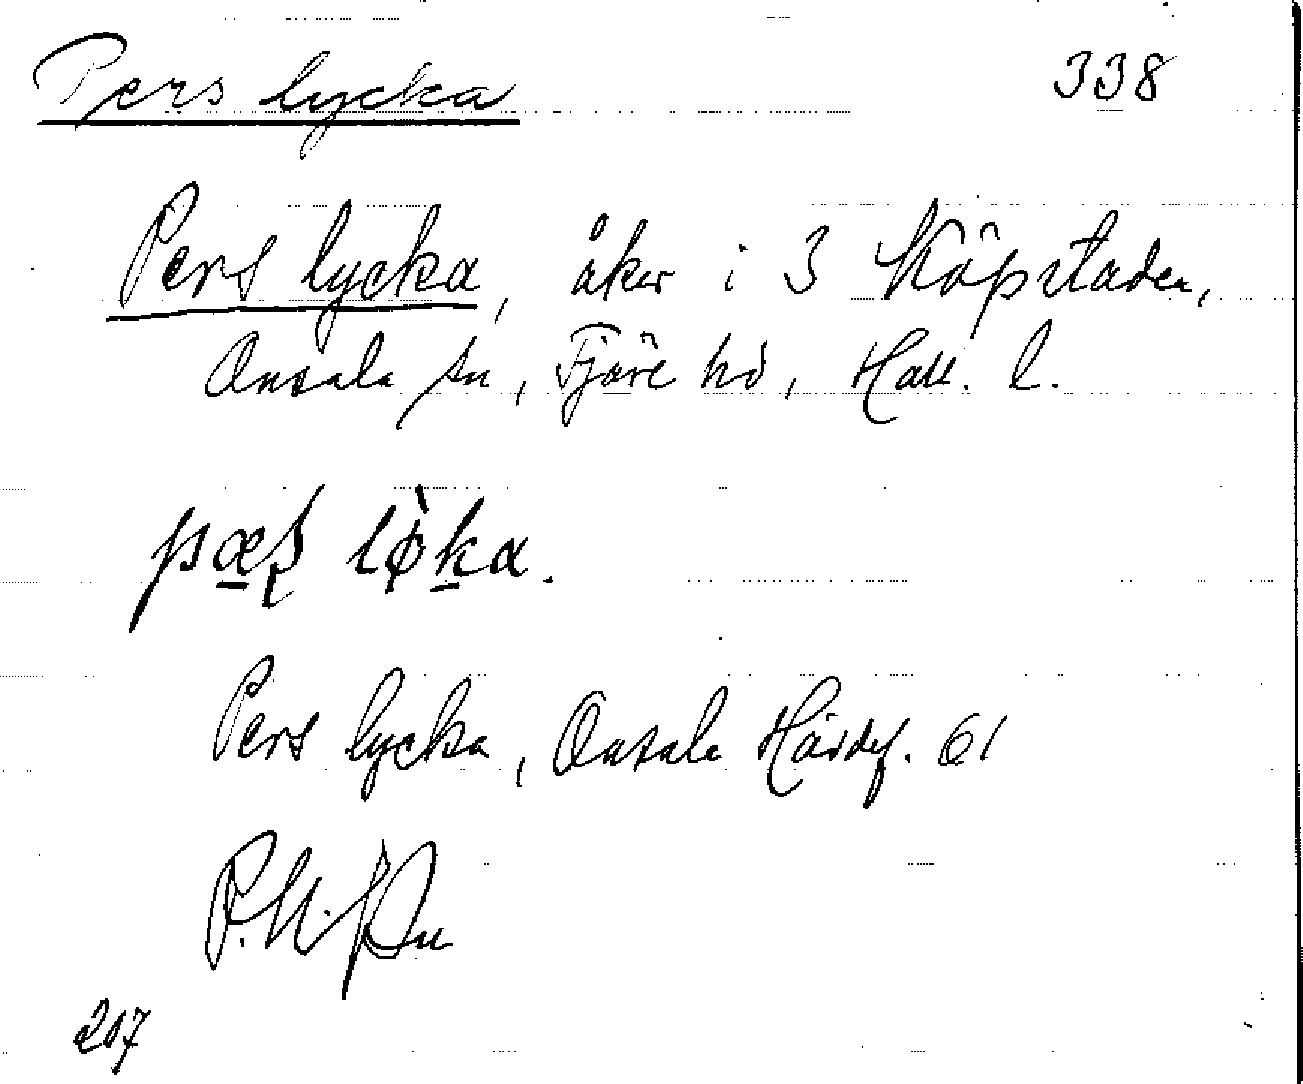 Pers lycka 338
Pers lycka, åker i 3 Köpstaden,
Onsala sn, Fjäre hd, Hall. l.
pæʂ lø̀ka.
Pers lycka, Onsala Hävdef. 61
207